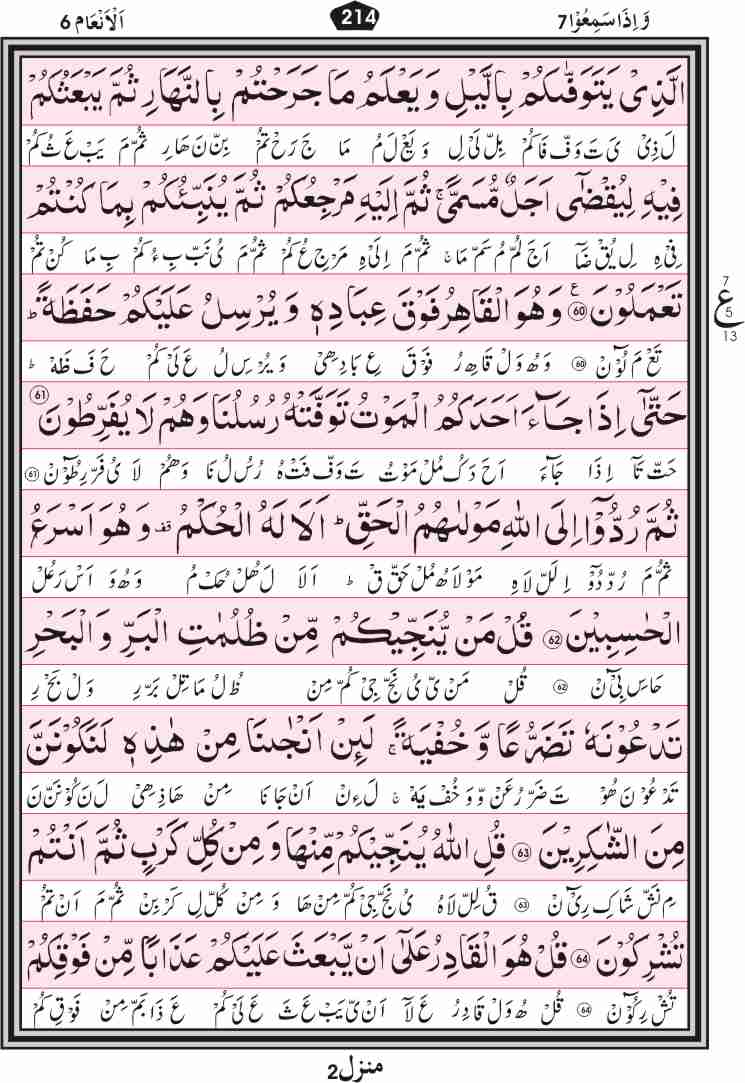 وَ اِذَا سَمِعُوْا 7
214
اَلْاَنْعَام 6
الَّذِىْ يَتَوَفّٰٮكُمْ بِالَّيْلِ وَ يَعْلَمُ مَا جَرَحْتُمْ بِالنَّهَارِ ثُمَّ يَبْعَثُكُمْ
لَ ذِىْ يَ تَ وَفْ فَا كُمْ بِلْ لَىْ لِ وَ يَعْ لَ مُ مَا جَ رَحْ تُمْ بِنْ نَ هَارِ ثُمْ مَ يَبْ عَ ثُ كُمْ
فِيْهِ لِيُقْضٰٓى اَجَلٌ مُّسَمًّى ۚ ثُمَّ اِلَيْهِ مَرْجِعُكُمْ ثُمَّ يُنَبِّئُكُمْ بِمَا كُنْتُمْ
فِىْ هِ لِ يُقْ ضَآ اَ جَ لُمْ مُ سَمْ مَا ۚ ثُمْ مَ اِلَىْ هِ مَرْ جِ عُ كُمْ ثُمْ مَ يُ نَبْ بِ ءُ كُمْ بِ مَا كُنْ تُمْ
تَعْمَلُوْنَ 60 وَ هُوَ الْقَاهِرُ فَوْقَ عِبَادِهٖ وَ يُرْسِلُ عَلَيْكُمْ حَفَظَةً ؕ
7
ع
5
13
تَعْ مَ لُوْٓنْ 60 وَ هُ وَلْ قَا هِ رُ فَوْ قَ عِ بَا دِ هِىْ وَ يُرْ سِ لُ عَ لَىْ كُمْ حَ فَ ظَهْ ؕ
حَتّٰٓى اِذَا جَآءَ اَحَدَكُمُ الْمَوْتُ تَوَفَّتْهُ رُسُلُنَا وَهُمْ لَا يُفَرِّطُوْنَ 61
حَتْ تَآ اِذَا جَآءَ اَحَ دَ كُ مُلْ مَوْتُ تَ وَفْ فَتْ هُ رُسُ لُ نَا وَهُمْ لَا يُ فَرْ رِطُوْٓنْ 61
ثُمَّ رُدُّوْٓا اِلَى اللّٰهِ مَوْلٰٮهُمُ الْحَقِّ ؕ اَلَا لَهُ الْحُكْمُ قف وَ هُوَ اَسْرَعُ
ثُمْ مَ رُدْ دُوْٓ اِ لَلْ لَا هِ مَوْ لَا هُ مُلْ حَقْ قْ ؕ اَ لَا لَ هُلْ حُكْ مُ وَ هُ وَ اَسْ رَ عُلْ
الْحٰسِبِيْنَ 62 قُلْ مَنْ يُّنَجِّيْكُمْ مِّنْ ظُلُمٰتِ الْبَرِّ وَ الْبَحْرِ
حَا سِ بِىْٓ نْ 62 قُلْ مَنْ ىْ يُ نَجْ جِىْ كُمْ مِنْ ظُ لُ مَا تِلْ بَرْ رِ وَلْ بَحْ رِ
تَدْعُوْنَهٗ تَضَرُّعًا وَّ خُفْيَةً ۚ لَئِنْ اَنْجٰٮنَا مِنْ هٰذِهٖ لَنَكُوْنَنَّ
تَدْ عُوْ نَ هُوْ تَ ضَرْ رُعَنْ وْ وَ خُفْ يَهْ ۚ لَ ءِنْ اَنْ جَا نَا مِنْ هَا ذِهِىْ لَ نَ كُوْنَنْ نَ
مِنَ الشّٰكِرِيْنَ 63 قُلِ اللّٰهُ يُنَجِّيْكُمْ مِّنْهَا وَ مِنْ كُلِّ كَرْبٍ ثُمَّ اَنْتُمْ
مِ نَشْ شَا كِ رِىْٓ نْ 63 قُ لِلْ لَا هُ يُ نَجْ جِىْ كُمْ مِنْ هَا وَ مِنْ كُلْ لِ كَرْ بِنْ ثُمْ مَ اَنْ تُمْ
تُشْرِكُوْنَ 64 قُلْ هُوَ الْقَادِرُ عَلٰٓى اَنْ يَّبْعَثَ عَلَيْكُمْ عَذَابًا مِّنْ فَوْقِكُمْ
تُشْ رِكُوْٓنْ 64 قُلْ هُ وَلْ قَا دِرُ عَ لَآ اَنْ ىْ يَبْ عَ ثَ عَ لَىْ كُمْ عَ ذَا بَمْ مِنْ فَوْ قِ كُمْ
منزل2